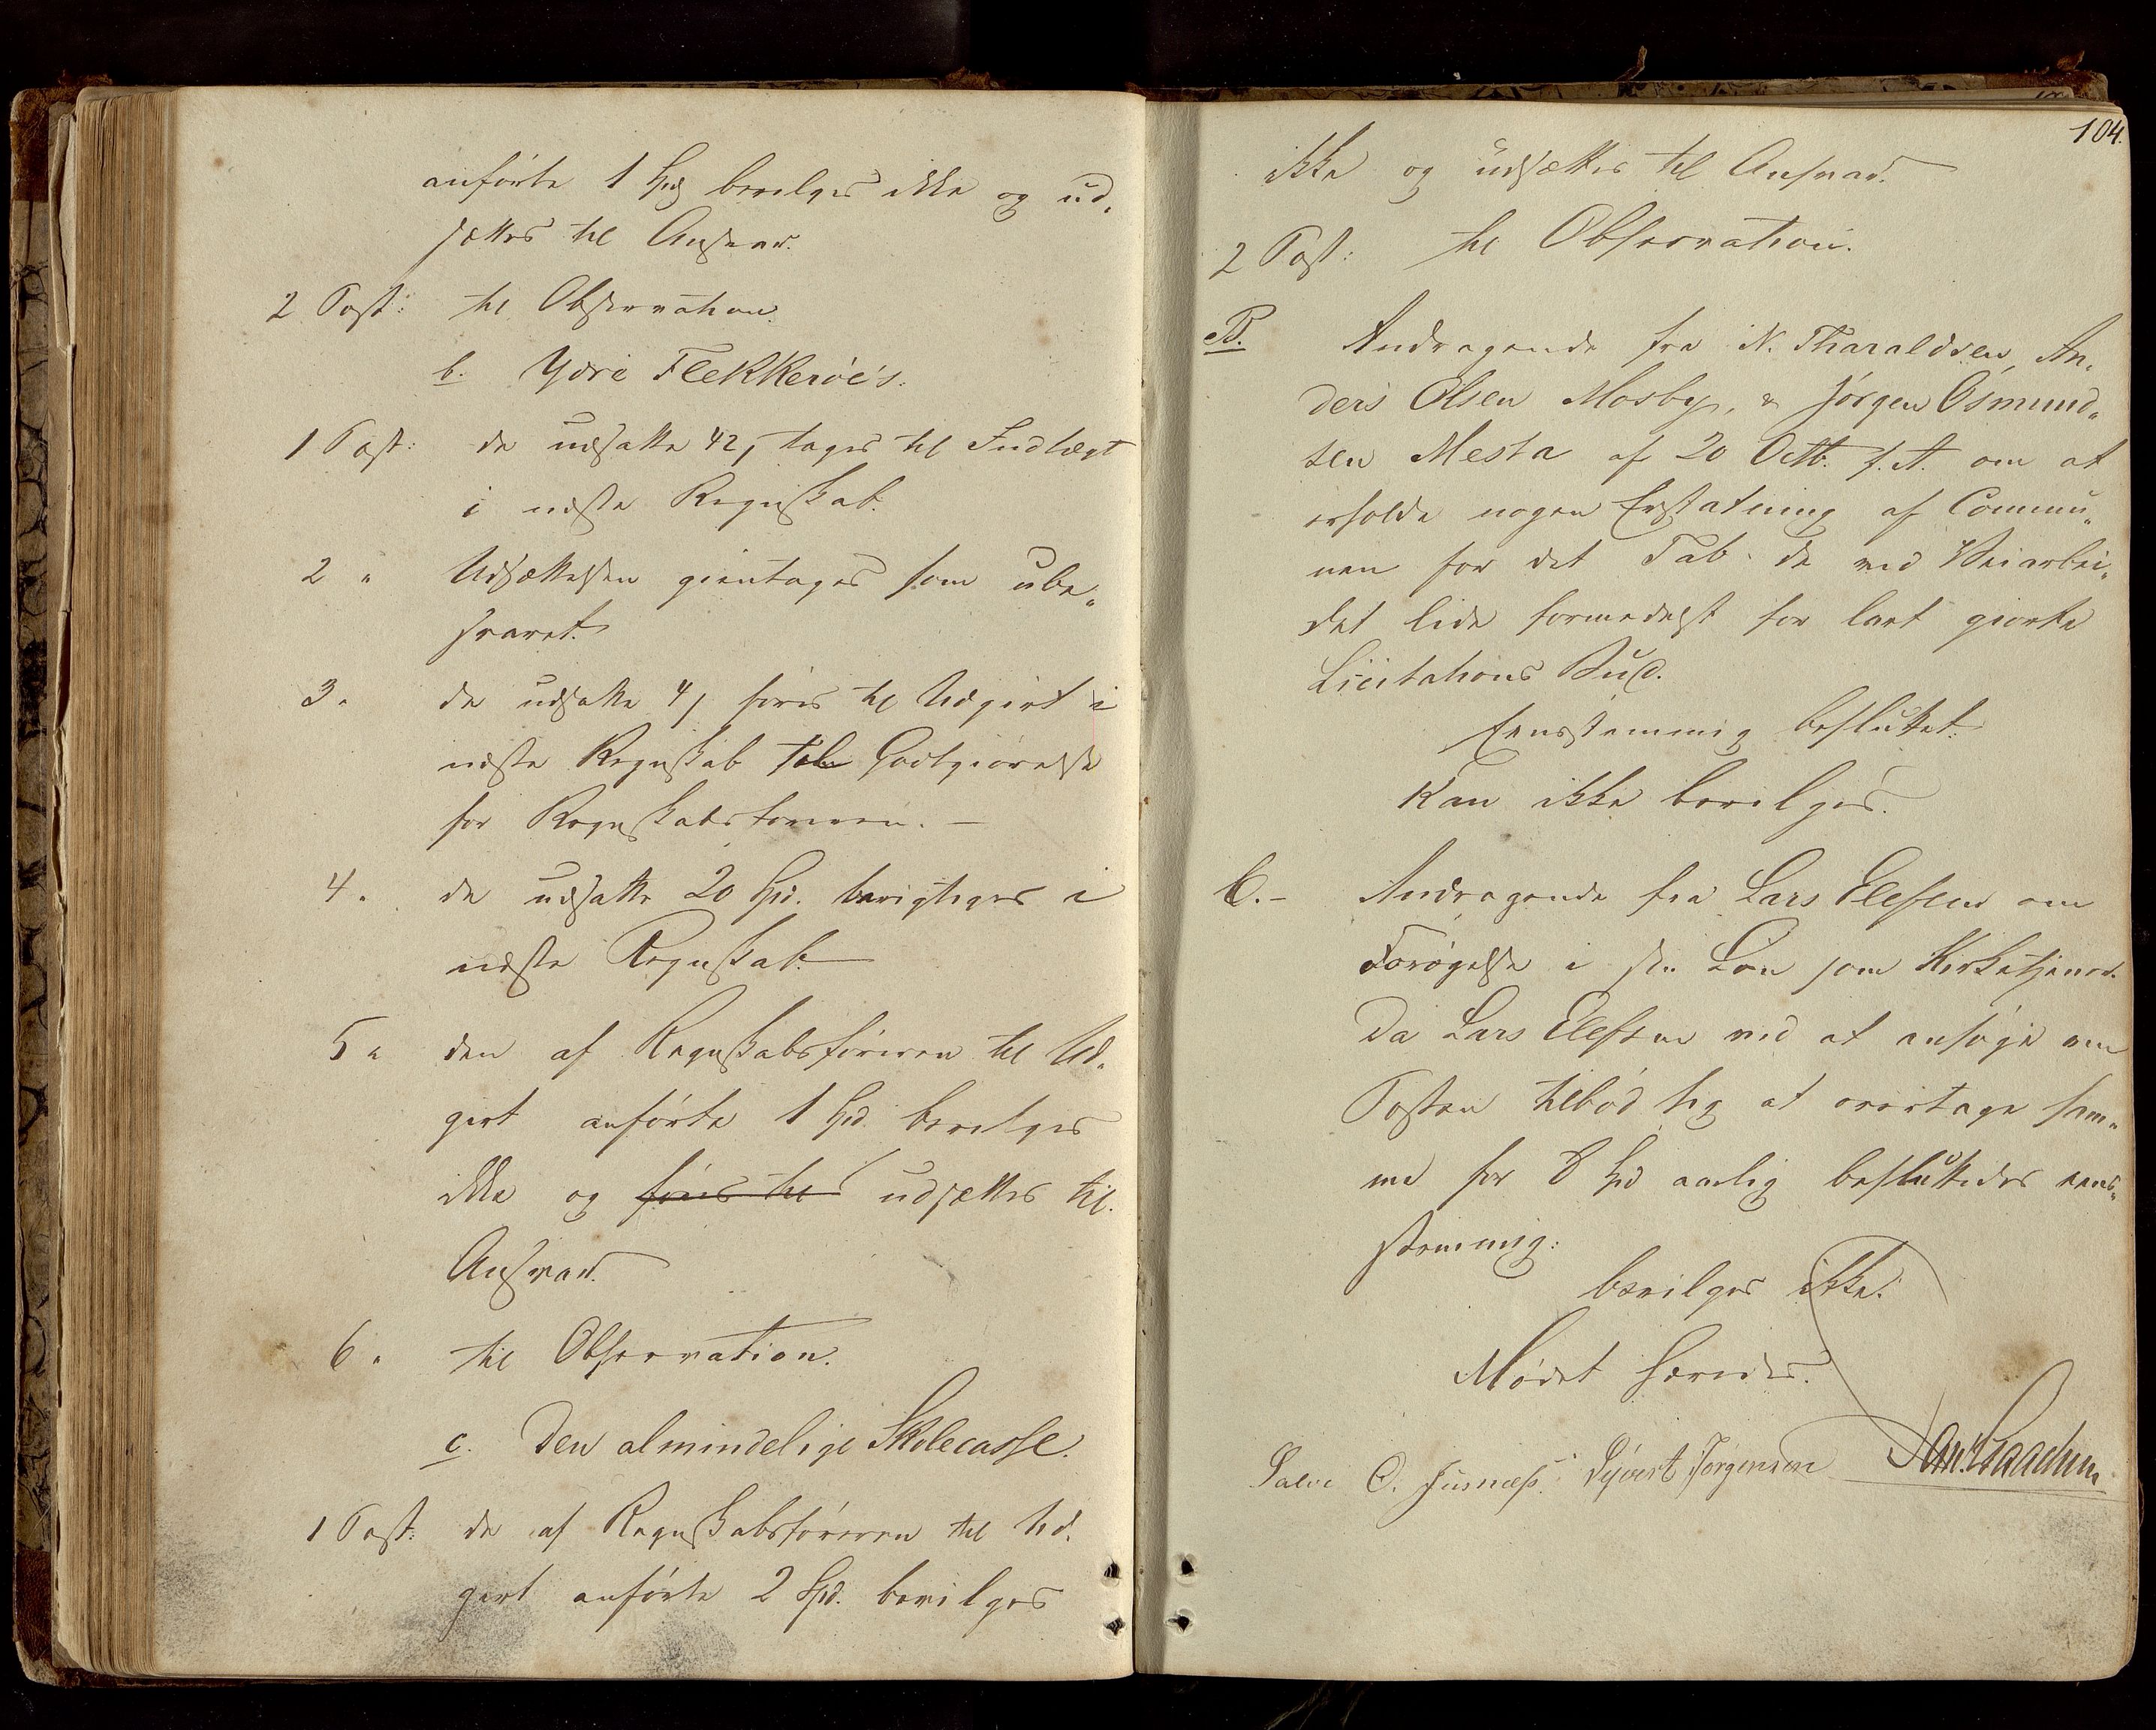 anførte 1 Spd bevilges ikke og ud„
sættes til Ansvar.
2 Post: til Observation.
b. Ydre Flekkerøe's.
1 Post: de udsatte 42, tages til Indtægt
i næste Regnskab.
2 " Udsættelsen gientages som ube„
svaret.
3 " de udsatte 4, føres til Udgivt i
næste Regnskab som Godtgiørelse
for Regnskabsføreren. –
4 " de udsatte 20 Spd. berigtiges i
næste Regnskab.
5 " den af Regnskabsføreren til Ud„
givt anførte 1 Spd. bevilges
ikke og føres til udsættes til
Ansvar.
6 " til Observation.
c. Den almindelige Skolecasse.
1 Post: de af Regnskabsføreren til Ud„
givt anførte 2 Spd. bevilges
104.
ikke og udsættes til Ansvar.
2 Post: til Observation.
B. Andragende fra N. Tharaldsen, An„
ders Olsen Mosby, & Jørgen Osmund„
sen Mesta af 20 Octb. f. A. om at
erholde nogen Erstatning af Commu„
nen for det Tab de ved Veiarbei„
det lide formedelst for lavt giorte
Licitations Bud.
Eensstemmig besluttet:
Kan ikke bevilges.
C. – Andragende fra Lars Elefsen om
Forøgelse i sin Løn som Kirketjener.
Da Lars Elefsen ved at ansøge om
Posten tilbød sig at overtage sam„
me for 8 Spd aarlig besluttedes eens„
stemmig:
bevilges ikke.
Mødet hævedes.
Salve O. Jusnæs. Syvert Jørgensen